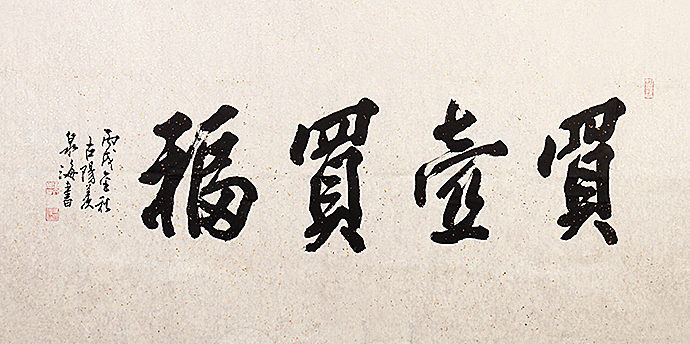 買壺買福
丙戌金秋
古陽羨
泉海書